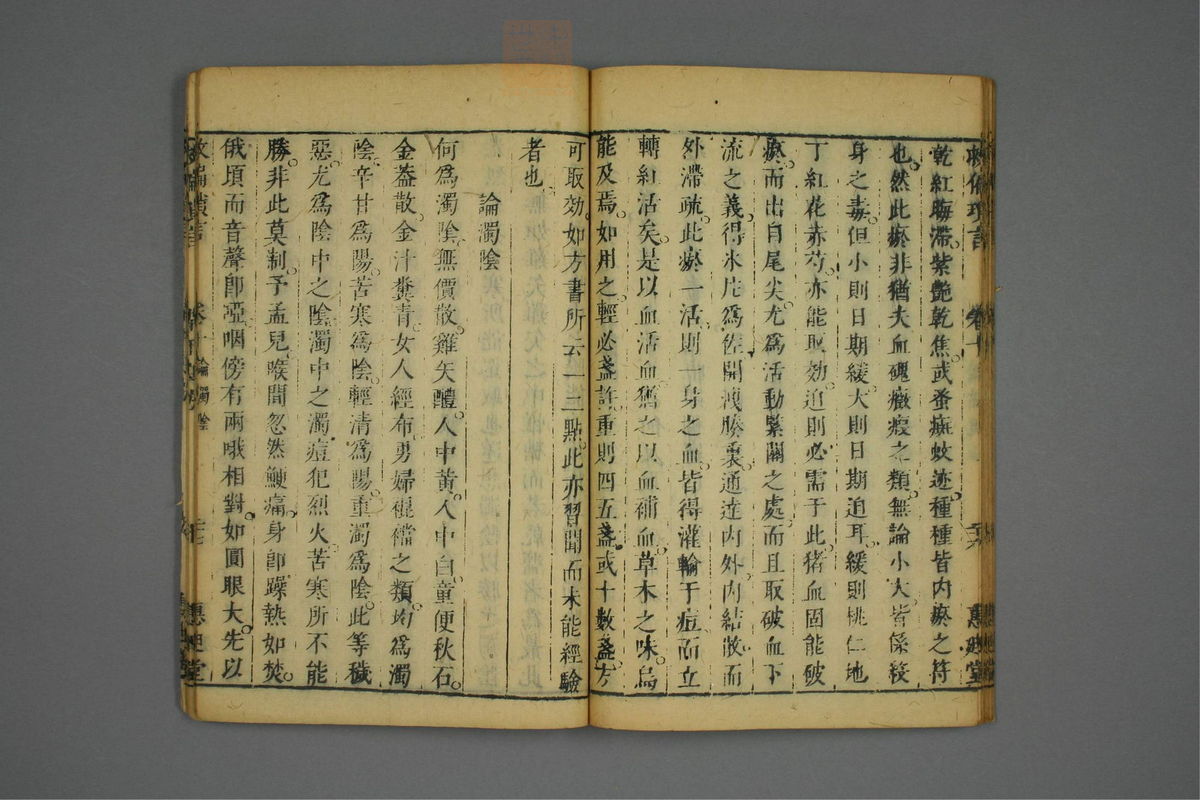 救偏瑣言
卷十
惠迪堂
乾紅晦滯紫艷乾焦或蚤癍蚊迹種種皆内瘀之符
也然此瘀非猶夫血磈癥瘕之類無論小大皆係殺
身之毒但小則日期緩大則日期迫耳緩則桃仁地
丁紅花赤芍亦能取効迫則必需于此猪血固能破
瘀而出自尾尖尤爲活動緊關之處而且取破血下
流之義得氷片爲佐開洩腠裏通達内外内結散而
外滯疏此瘀一活則一身之血皆得灌輸于痘而立
轉紅活矣是以血活血猶之以血補血草木之味烏
能及焉如用之輕必盞許重則四五盞或十數盞方
可取効如方書所云一二三點此亦習聞而未能經驗
者也
論濁陰
何爲濁陰無價散雞矢醴人中黃人中白童便秋石
金盞散金汁糞青女人經布男婦裩襠之類均爲濁
陰辛甘爲陽苦寒爲陰輕清爲陽重濁爲陰此等穢
惡尤爲陰中之陰濁中之濁痘犯烈火苦寒所不能
勝非此莫制予孟兒喉間忽然鯁痛身卽躁熱如焚
俄頃而音聲卽啞咽傍有兩哦相對如圓眼大先以
救偏瑣言
卷十 論濁陰
惠迪堂